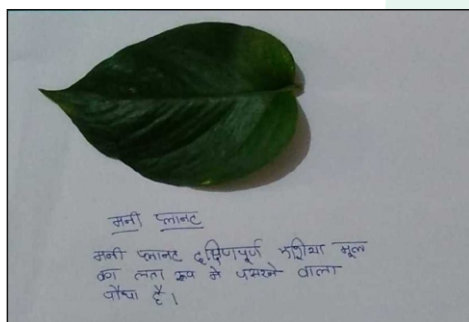 मनी प्लानट
मनी प्लानट दक्षिणपूर्ण एशिया मूल
का लता रूप मे पसरने वाला
पौधा है।